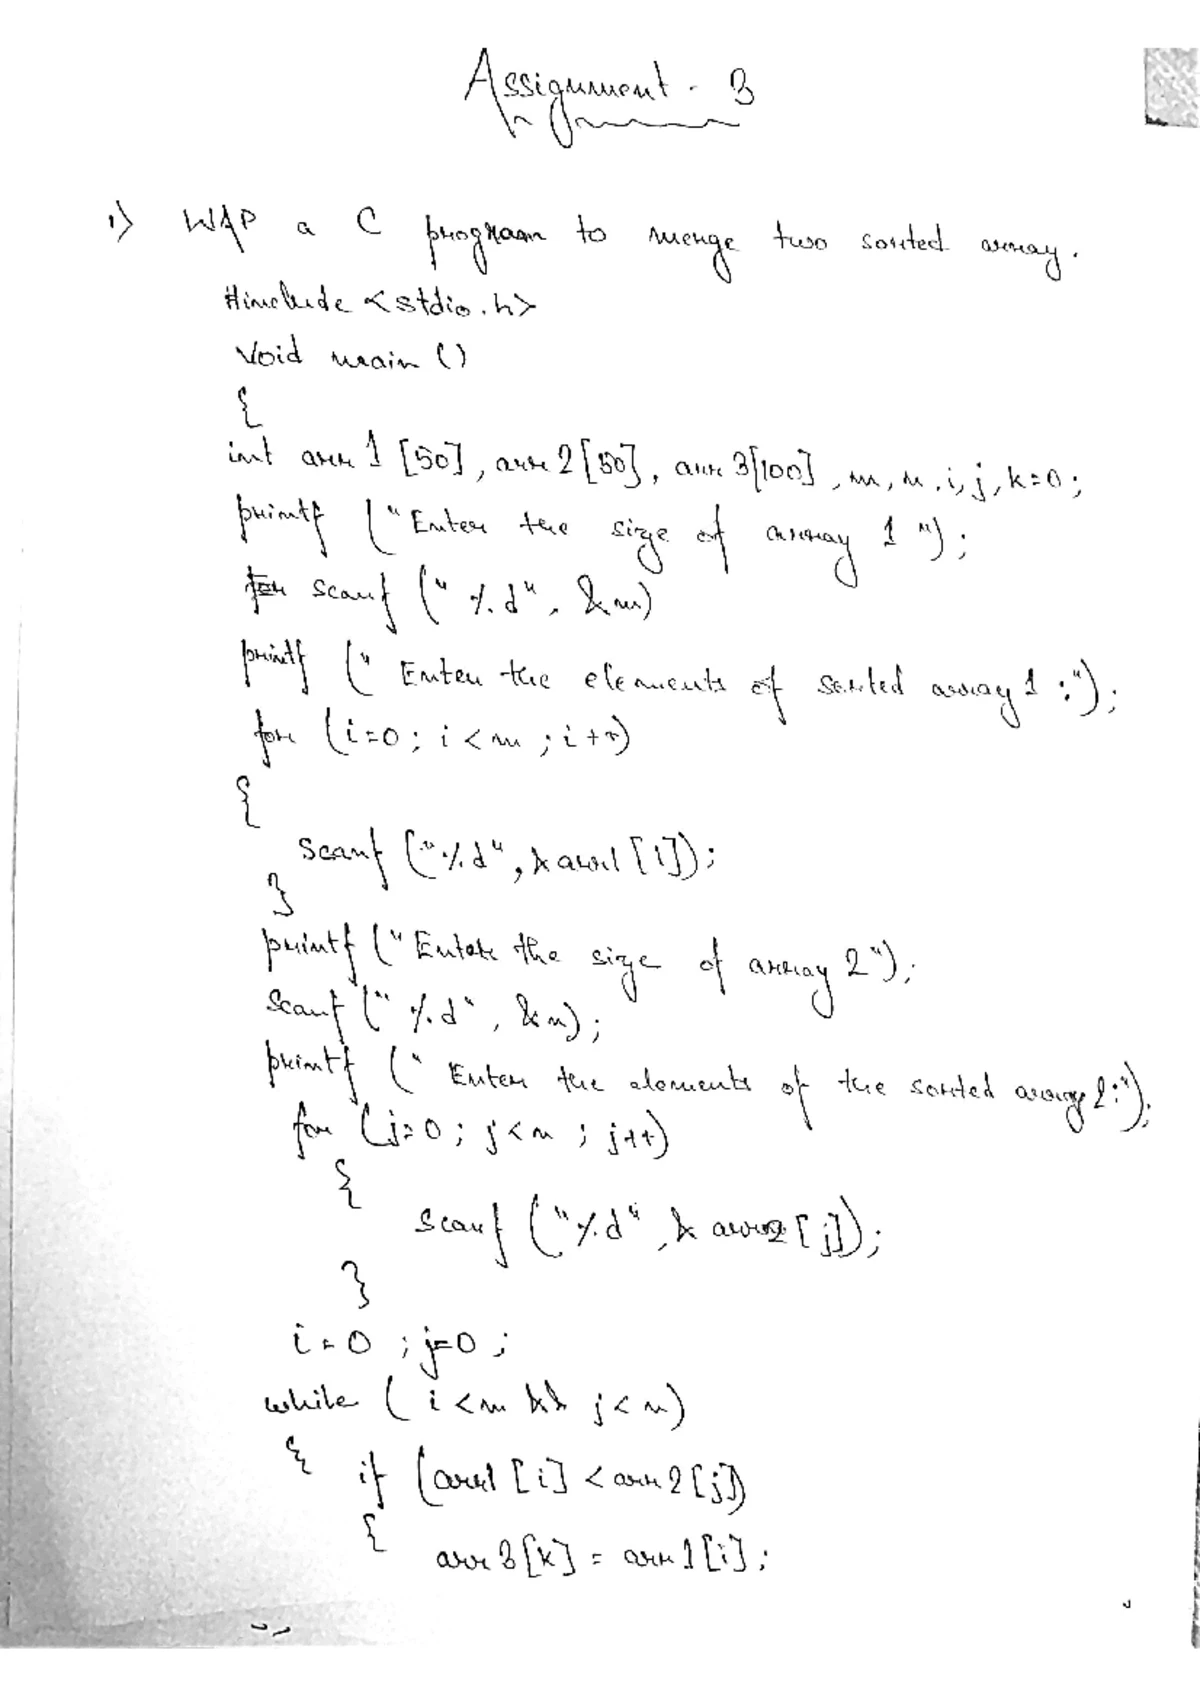 Assignment - 3
1) WAP a C program to merge two sorted array.
#include <stdio.h>
Void main ()
{
int arr 1 [50], arr 2 [50], arr 3[100], m, n, i, j, k=0;
printf ("Enter the size of array 1 ");
for scanf ("%d", &m)
printf (" Enter the elements of sorted array 1 :");
for (i=0; i<m ; i++)
{
scanf ("%d", & arr1 [i]);
}
printf ("Enter the size of array 2");
Scanf ("%d", &n);
printf (" Enter the elements of the sorted array 2:");
for (j=0; j<n ; j++)
{
scanf ("%d", & arr2 [j]);
}
i = 0 ; j=0 ;
while ( i <m && j< n)
{ if (arr1 [i] < arr 2 [j])
{
arr 3 [k] = arr 1 [i];